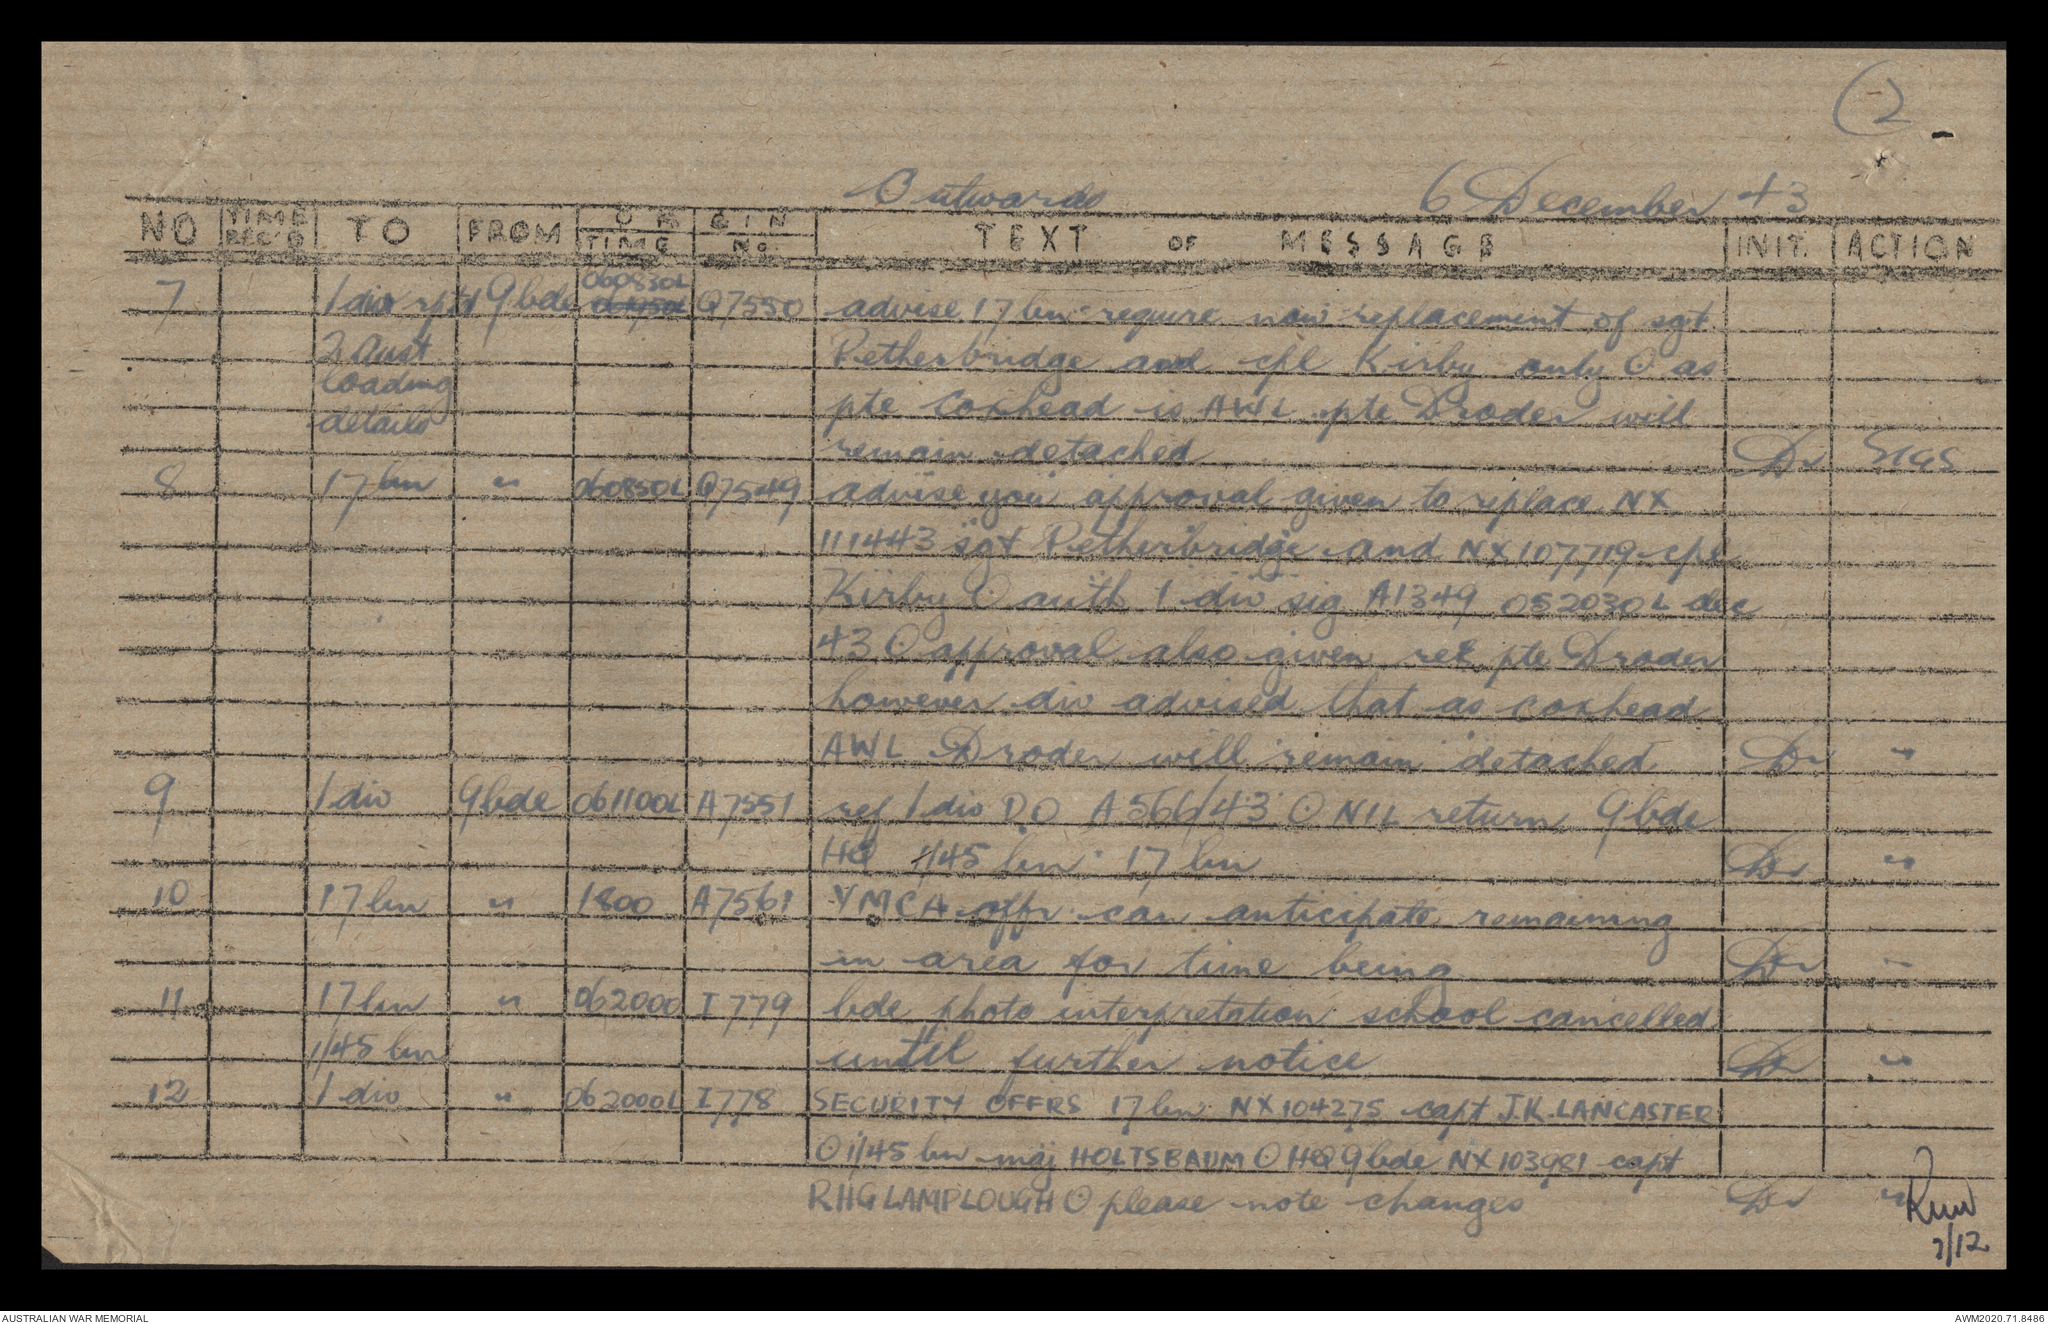 2
Outwards 6 December 43
NO TIME REC'D TO FROM ORIGIN TIME No. TEXT OF MESSAGE INIT. ACTION
7 1 div rptd 9 bde 060830L Q7550 advise 17 bn require now replacement of sgt
2 Aust Petherbridge and cpl Kirby only O as
loading
details pte Coxhead is AWL pte Droder will
remain detached Dr SIGS
8 17 bn " 060850L Q7549 advise you approval given to replace NX
111443 sgt Petherbridge and NX107719 cpl
Kirby O auth 1 div sig A1349 052030L dec
43 O approval also given re pte Droder
however div advised that as coxhead
AWL Droder will remain detached Dr "
9 1 div 9 bde 061100L A7551 ref 1 div D.O A566/43 O NIL return 9 bde
HQ 1/45 bn 17 bn Dr "
10 17 bn " 1800 A7561 YMCA offr can anticipate remaining
in area for time being Dr "
11 17 bn " 062000 I779 bde photo interpretation school cancelled
1/45 bn until further notice Dr "
12 1 div " 062000L I778 SECURITY OFFRS 17 bn NX104275 capt J.K. LANCASTER
O 1/45 bn maj HOLTSBAUM O HQ 9 bde NX103981 capt
RHG LAMPLOUGH O please note changes Dr "
7/12
AUSTRALIAN WAR MEMORIAL AWM2020.71.8486